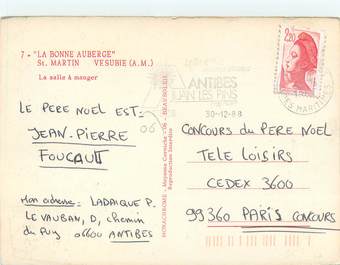 7 - "LA BONNE AUBERGE"
St. MARTIN VESUBIE (A.M.)
La salle à manger
LE PERE NOEL EST:
JEAN-PIERRE
FOUCAULT
06
Mon adresse: LADAIQUE P.
LE VAUBAN, D, chemin
du Puy 06600 ANTIBES
MONACHROME - Moyenne Corniche - 06 - BEAUSOLEIL
Reproduction Interdite
2,20
ANTIBES
JUAN LES PINS
30-12-88
CONCOURS DU PERE NOEL
TELE LOISIRS
CEDEX 3600
99360 PARIS CONCOURS